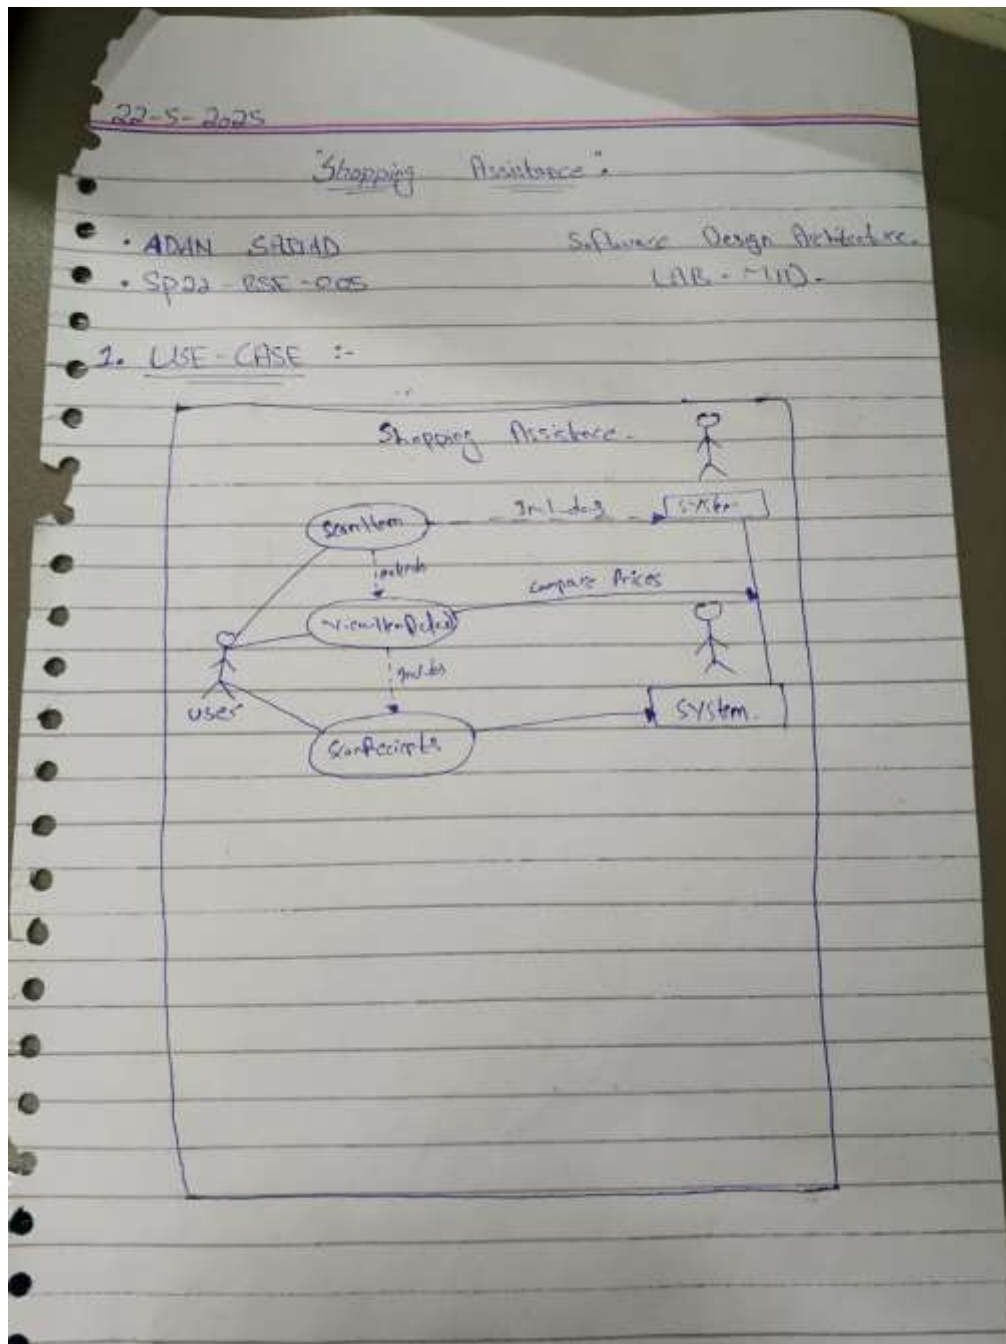 22-5-2025
"Shopping Assistance".
• ADAN SAJJAD
Software Design Architecture.
• SP22-BSE-005
LAB-MID.
1. USE-CASE :-
Shopping Assistance.
ScanItem
Includes
System
extends
Compare Prices
ViewItemDetail
Includes
user
System.
ScanReciepts